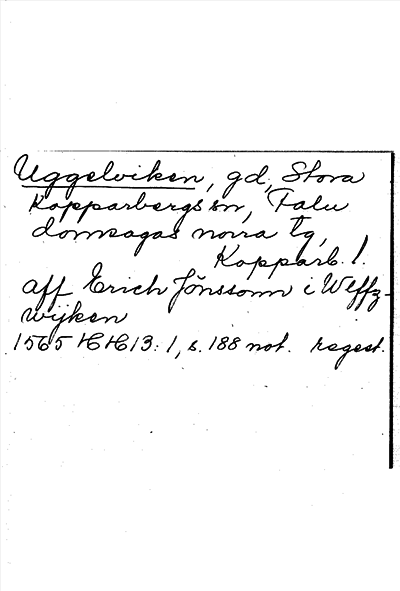 Uggelviken, gd, Stora
Kopparbergs sn, Falu
domsagas norra tg,
Kopparb. l.
aff Erich Jönssonn i Wlffz-
wijken
1565 HH 13: 1, s. 188 not. regest.